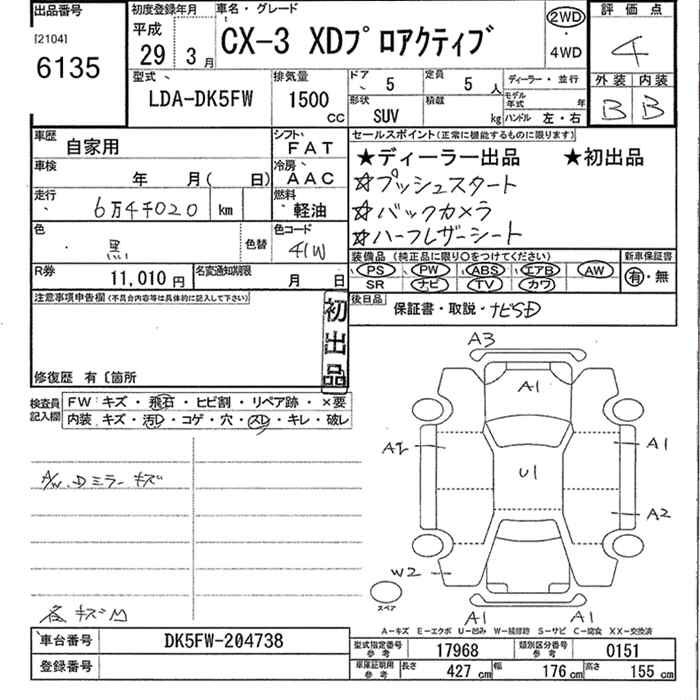 出品番号
[2104]
6135
初度登録年月
平成
29年 3月
車名・グレード
CX-3 XDプロアクティブ
2WD
・
4WD
評価点
4
外装 内装
B B
型式
LDA-DK5FW
排気量
1500
CC
ドア 5
定員 5人
形状
SUV
積載 kg
ディーラー・並行
モデル年式 年
ハンドル 左・右
車歴
自家用
シフト
FAT
車検
年 月( 日)
冷房
AAC
走行
6万4千020 km
燃料
軽油
色
黒
色替
色コード
41W
R券
11,010円
名変通知期限
月 日
セールスポイント(正常に機能するものに限ります)
★ディーラー出品 ★初出品
☆プッシュスタート
☆バックカメラ
☆ハーフレザーシート
装備品 (純正品に限り○をつけてください)
PS PW ABS エアB AW
SR ナビ TV カワ
新車保証書
有・無
後日品
保証書・取説・ナビSD
注意事項申告欄(不具合内容等は具体的に記入して下さい)
初出品
修復歴 有〔箇所
検査員記入欄
FW:キズ・飛石・ヒビ割・リペア跡・×要
内装:キズ・汚D・コゲ・穴・スD・キレ・破レ
A/W.Dミラー キズ
各キズM
A3
A1
A2
A1
U1
A2
W2
スペア
A1
A1
A-キズ E-エクボ U-凹み W-補修跡 S-サビ C-腐食 XX-交換済
車台番号
DK5FW-204738
登録番号
型式指定番号
参考
17968
類別区分番号
参考
0151
車庫証明用
参考
長さ 427cm
幅 176cm
高さ 155cm